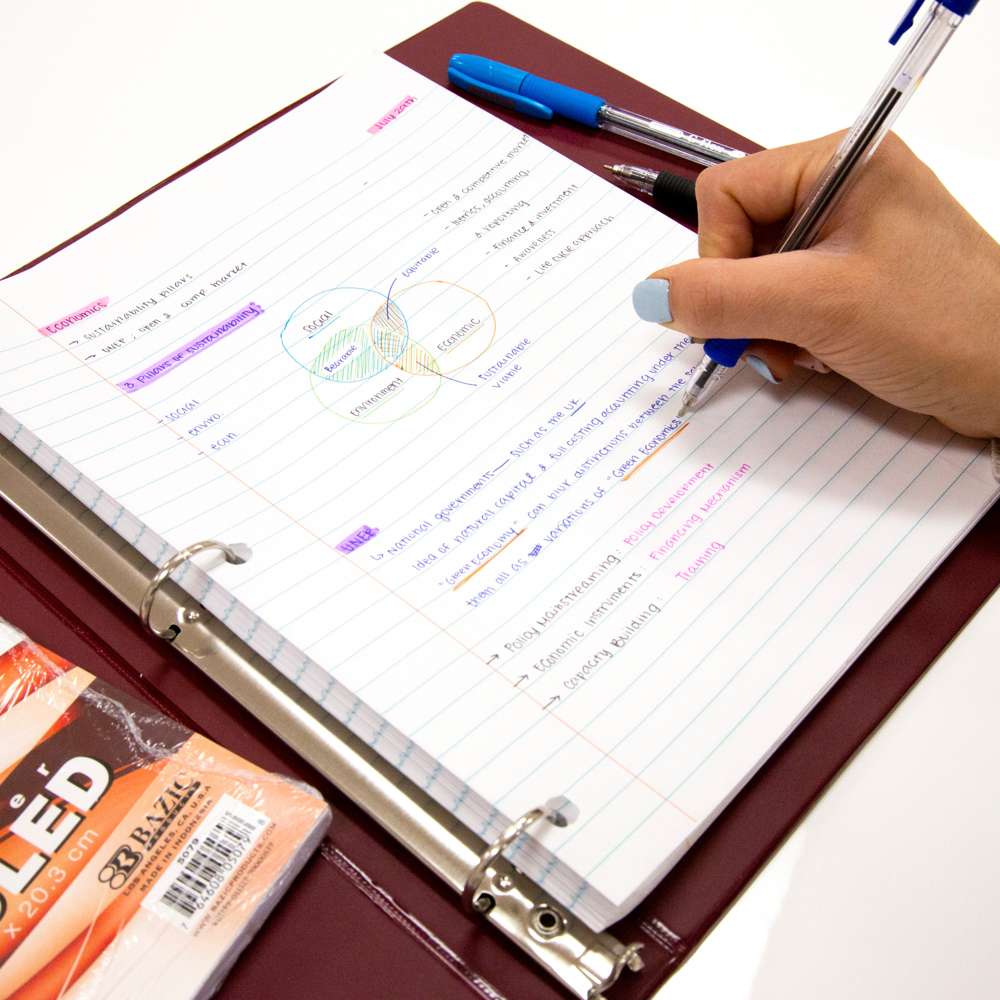 July 2019
Economics
→ Sustainability Pillars
→ UNEP; open & comp market
3 Pillars of Sustainability:
- Social
- enviro
- econ
Social
Economic
Environment
Bearable
Equitable
Sustainable
Viable
- Open & competitive market
- Metrics, accounting,
& reporting
- Finance & investment
- Awareness
- Life cycle approach
UNEP
↳ National governments— such as the UK
Idea of natural capital & full costing accounting under the
"Green Economy" can blur distinctions between the
them all as variations of "Green Economics
→ Policy Mainstreaming: Policy Development
→ Economic Instruments: Financing Mechanism
→ Capacity Building: Training
LED
x 20.3 cm
BAZIC
LOS ANGELES, CA. U.S.A
MADE IN INDONESIA
5079
7 64608 05079
WWW.BAZICPRODUCTS.COM